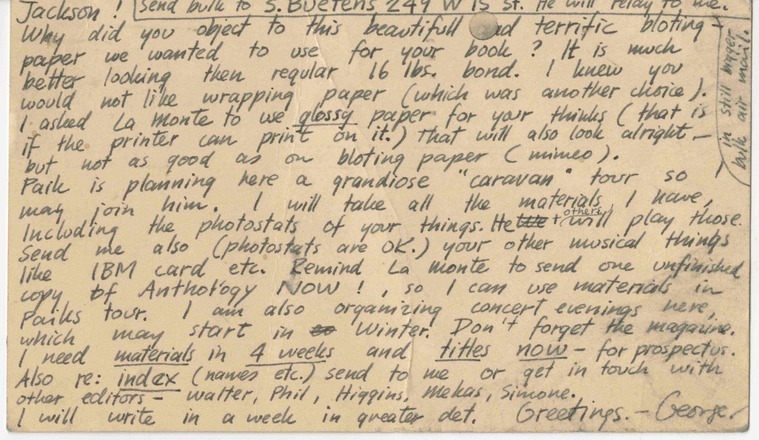 Jackson! Send bulk to S. Buetens 249 W 15 St. He will relay to me.
Why did you object to this beautifull and terrific bloting-
paper we wanted to use for your book? It is much
better looking then regular 16 lbs. bond. I knew you
would not like wrapping paper (which was another choice).
I asked La Monte to use glossy paper for your thinks (that is
if the printer can print on it.) That will also look alright –
but not as good as on bloting paper (mimeo).
Paik is planning here a grandiose "caravan" tour so I
may join him. I will take all the materials I have,
Including the photostats of your things. He + others will play those.
Send me also (photostats are OK.) your other musical things
like IBM card etc. Remind La monte to send one unfinished
copy of Anthology NOW!, so I can use materials in
Paiks tour. I am also organizing concert evenings here,
which may start in Winter. Don't forget the magazine.
I need materials in 4 weeks and titles now – for prospectus.
Also re: index (names etc.) send to me or get in touch with
other editors – walter, Phil, Higgins, Mekas, Simone.
I will write in a week in greater det. Greetings. – George.
in still bigger
bulk air mail!